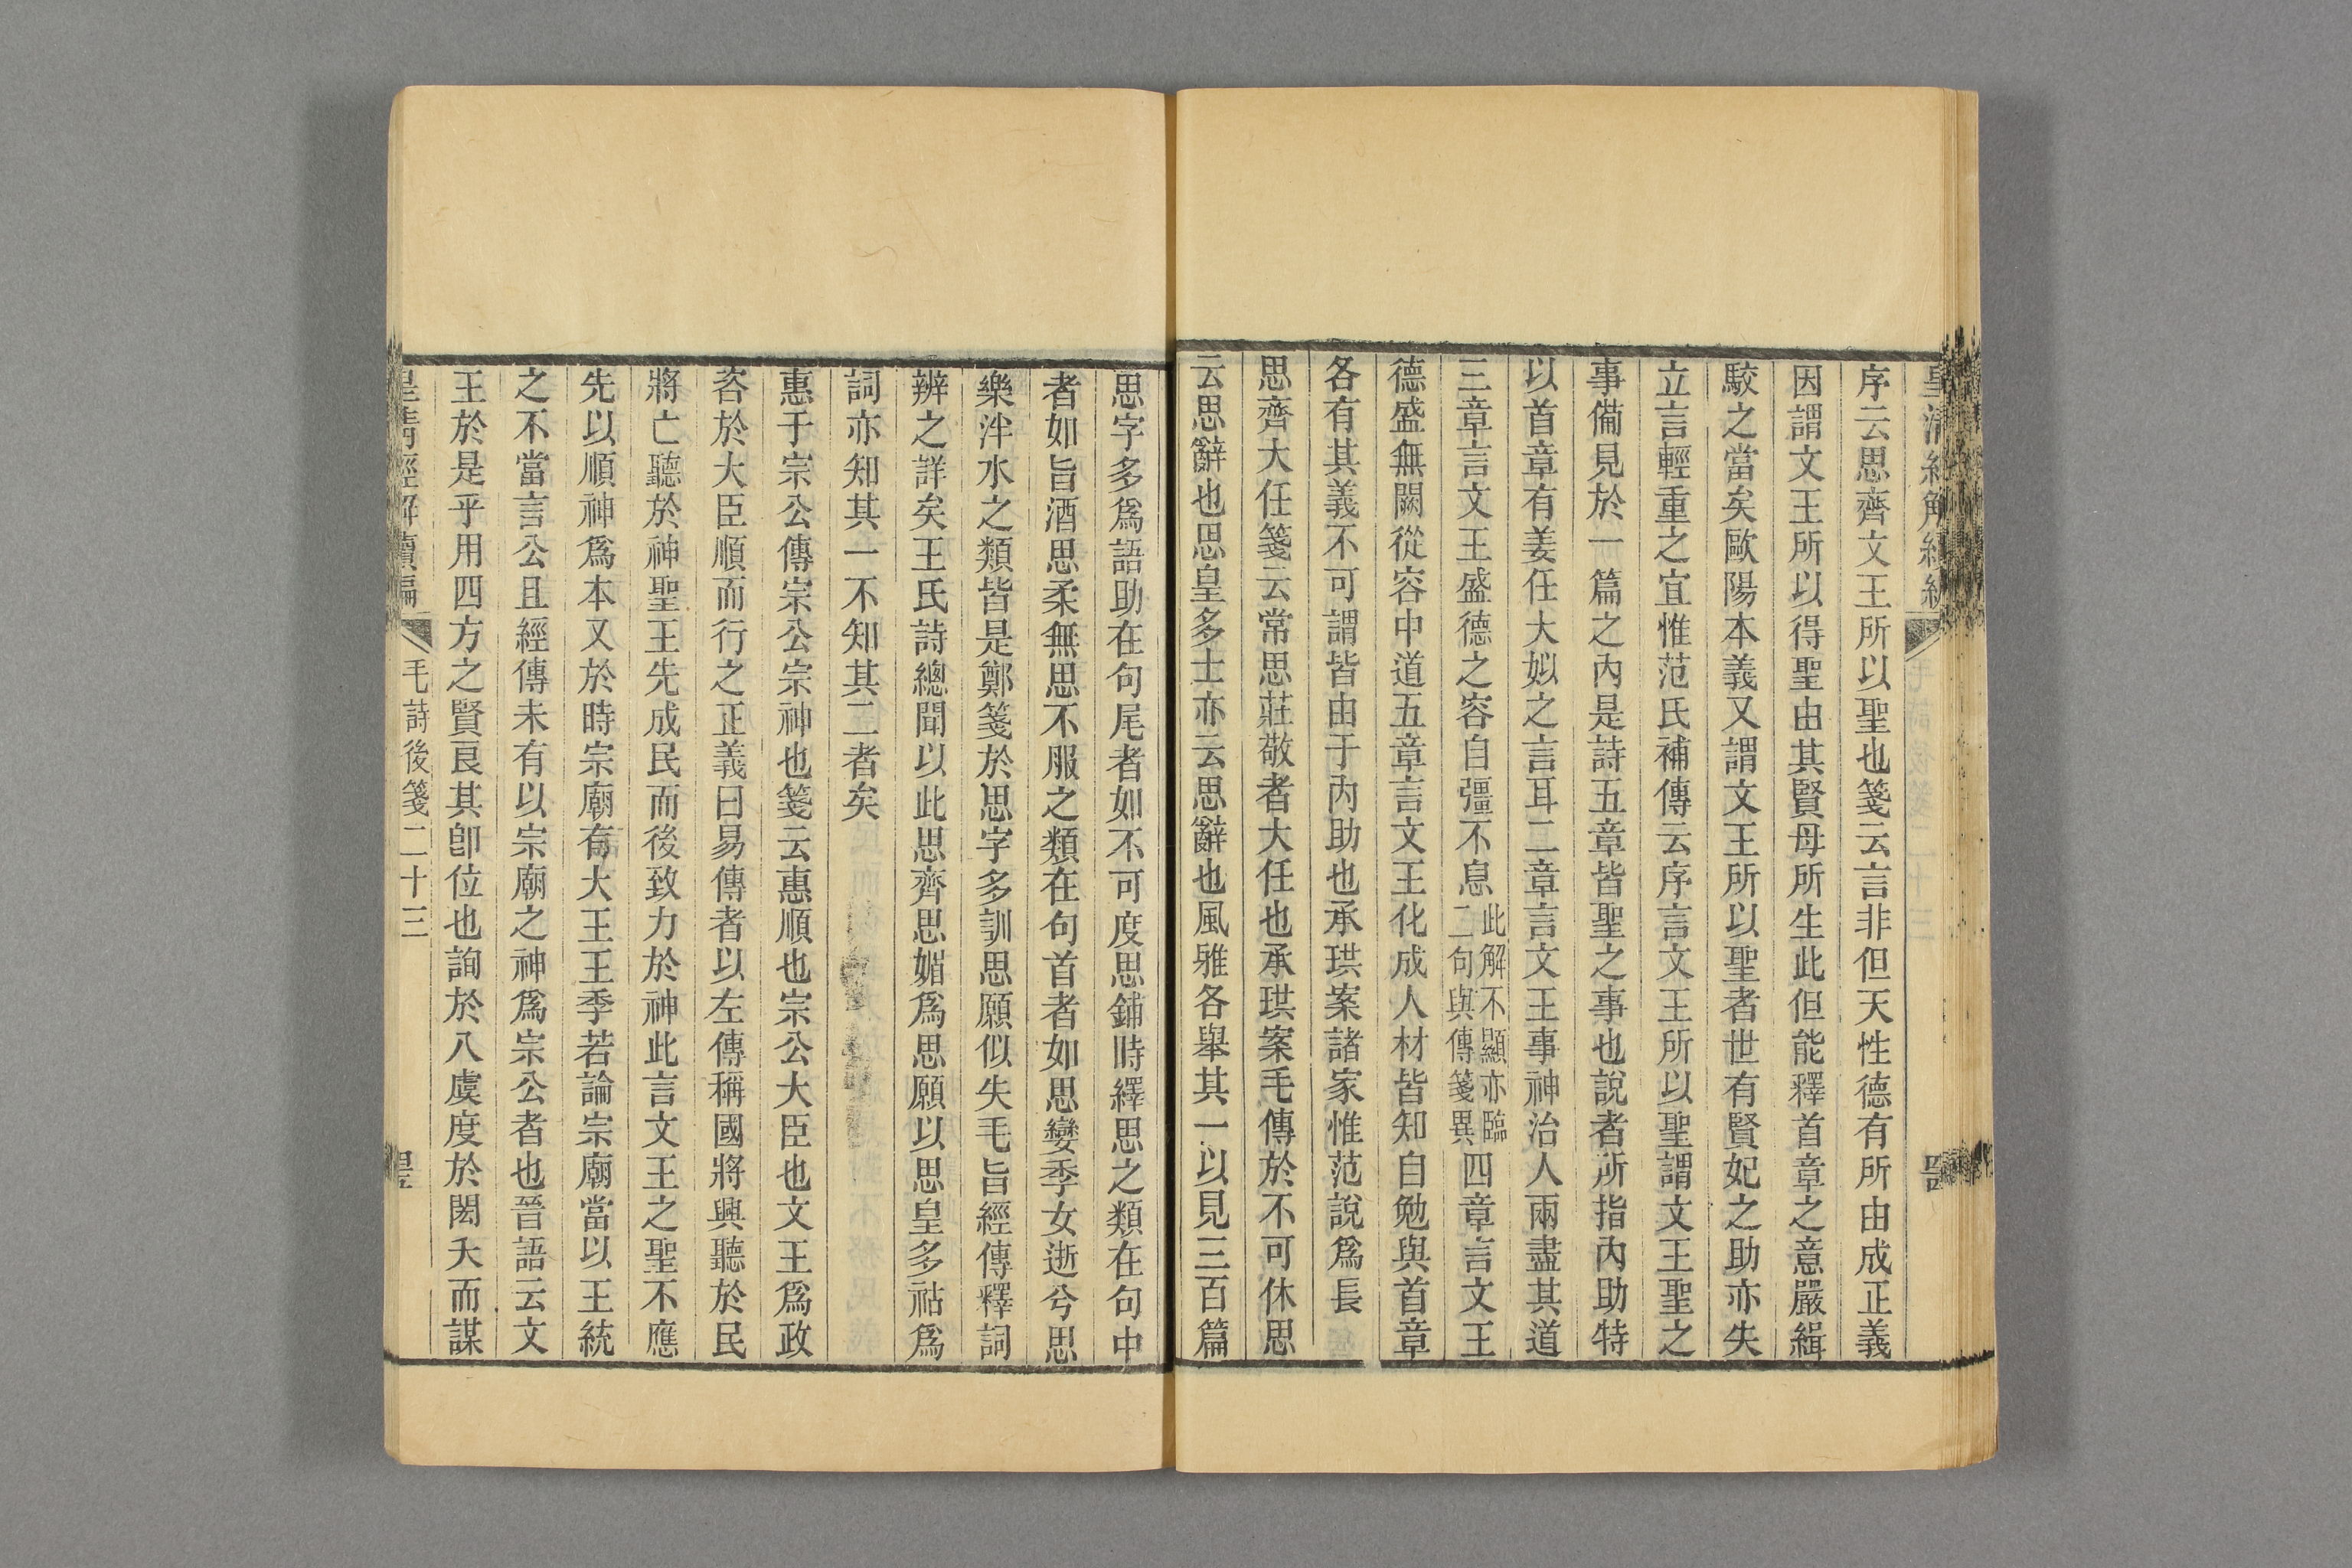 序云思齊文王所以聖也箋云言非但天性德有所由成正義
因謂文王所以得聖由其賢母所生此但能釋首章之意嚴緝
駮之當矣歐陽本義又謂文王所以聖者世有賢妃之助亦失
立言輕重之宜惟范氏補傳云序言文王所以聖謂文王聖之
事備見於一篇之內是詩五章皆聖之事也說者所指內助特
以首章有姜任大姒之言耳二章言文王事神治人兩盡其道
三章言文王盛德之容自彊不息此解不顯亦臨二句與傳箋異四章言文王
德盛無闕從容中道五章言文王化成人材皆知自勉與首章
各有其義不可謂皆由于內助也承珙案諸家惟范說爲長
思齊大任箋云常思莊敬者大任也承珙案毛傳於不可休思
云思辭也思皇多士亦云思辭也風雅各舉其一以見三百篇
思字多爲語助在句尾者如不可度思鋪時繹思之類在句中
者如旨酒思柔無思不服之類在句首者如思孌季女逝兮思
樂泮水之類皆是鄭箋於思字多訓思願似失毛旨經傳釋詞
辨之詳矣王氏詩總聞以此思齊思媚爲思願以思皇多祜爲
詞亦知其一不知其二者矣
惠于宗公傳宗公宗神也箋云惠順也宗公大臣也文王爲政
咨於大臣順而行之正義曰易傳者以左傳稱國將興聽於民
將亡聽於神聖王先成民而後致力於神此言文王之聖不應
先以順神爲本又於時宗廟有大王王季若論宗廟當以王統
之不當言公且經傳未有以宗廟之神爲宗公者也晉語云文
王於是乎用四方之賢良其卽位也詢於八虞度於閎夭而謀
皇清經解續編 毛詩後箋二十三